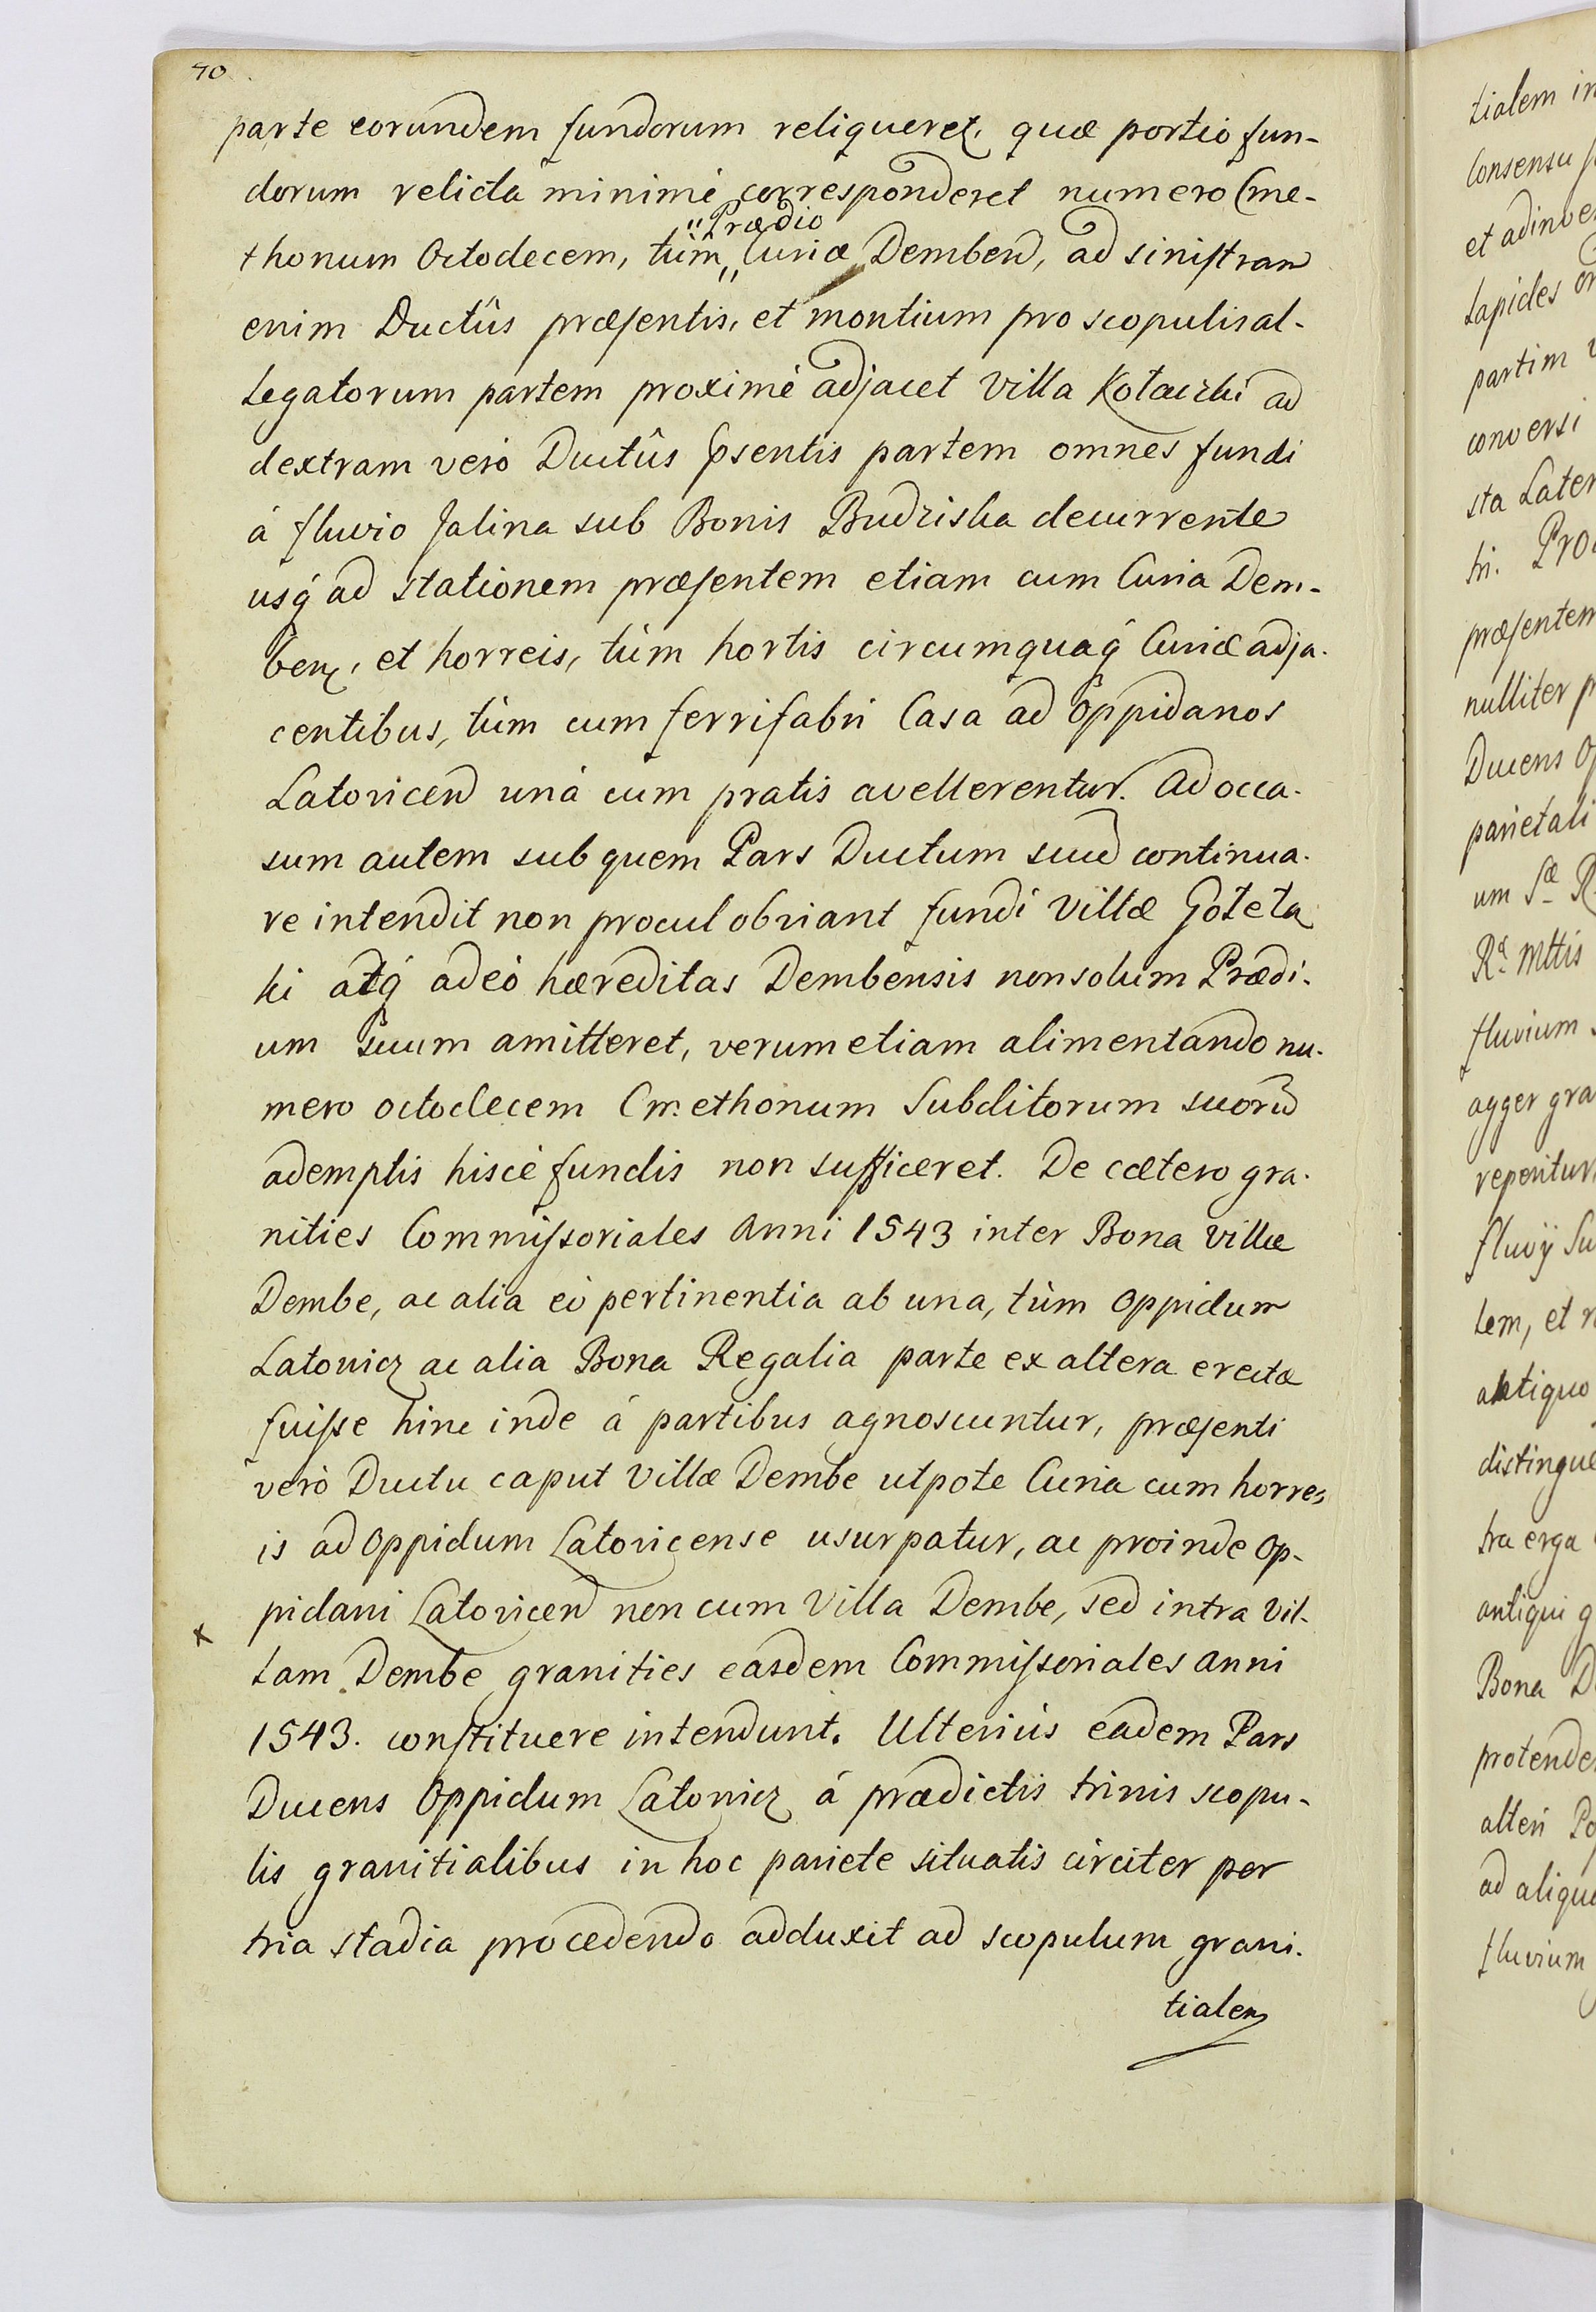 40
parte eorundem fundorum reliqueret, quæ portio fun-
dorum relicta minimè corresponderet numero Cme-
"Prædio
thonum Octodecem, tùm,, Curiæ Demben, ad sinistram
enim Ductûs præsentis, et montium pro scopulis al-
legatorum partem proximè adjacet Villa Kotaczki ad
dextram verò Ductûs psentis partem omnes fundi
à fluvio Jalina sub Bonis Budziska decurrente
usq́ ad stationem præsentem etiam cum Curia Dem-
ben, et horreis, tùm hortis circumquaq́ Curiæ adja-
centibus, tùm cum ferrifabri Casa ad oppidanos
Latovicen unà cum pratis avellerentur. Ad occa-
sum autem sub quem Pars Ductum suu continua-
re intendit non procul obviant fundi Villæ Goleła
ki atq́ adeò hæreditas Dembensis non solum Prædi-
um suum amitteret, verum etiam alimentando nu-
mero octodecem Cmethonum Subditorum suorũ
ademptis hiscè fundis non sufficeret. De cætero gra-
nities Commissoriales Anni 1543 inter Bona Villæ
Dembe, ac alia eò pertinentia ab una, tùm Oppidum
Latovicz ac alia Bona Regalia parte ex altera erectæ
fuisse hinc inde à partibus agnoscuntur, præsenti
verò Ductu caput Villæ Dembe utpote Curia cum horre-
is ad Oppidum Latovicense usurpatur, ac proinde Op-
pidani Latovicen non cum Villa Dembe, sed intra Vil-
x
lam Dembe granities easdem Commissoriales Anni
1543. constituere intendunt. Ulteriùs eadem Pars
Ducens Oppidum Latovicz à prædictis trinis scopu-
lis granitialibus in hoc pariete situatis circiter per
tria stadia procedendo adduxit ad scopulum grani-
tialem
tialem in
Consensu
et adinve
Lapides
partim
conversi
sta Later
tri. Pro
præsentem
nulliter
Ducens
parietali
um Sæ R
Ræ Mttis
fluvium
agger gra
reperitur
fluvij Su
lem, et
antiquo
distingue
tra erga
antiqui g
Bona D
protende
alteri Po
ad aliqu
fluvium